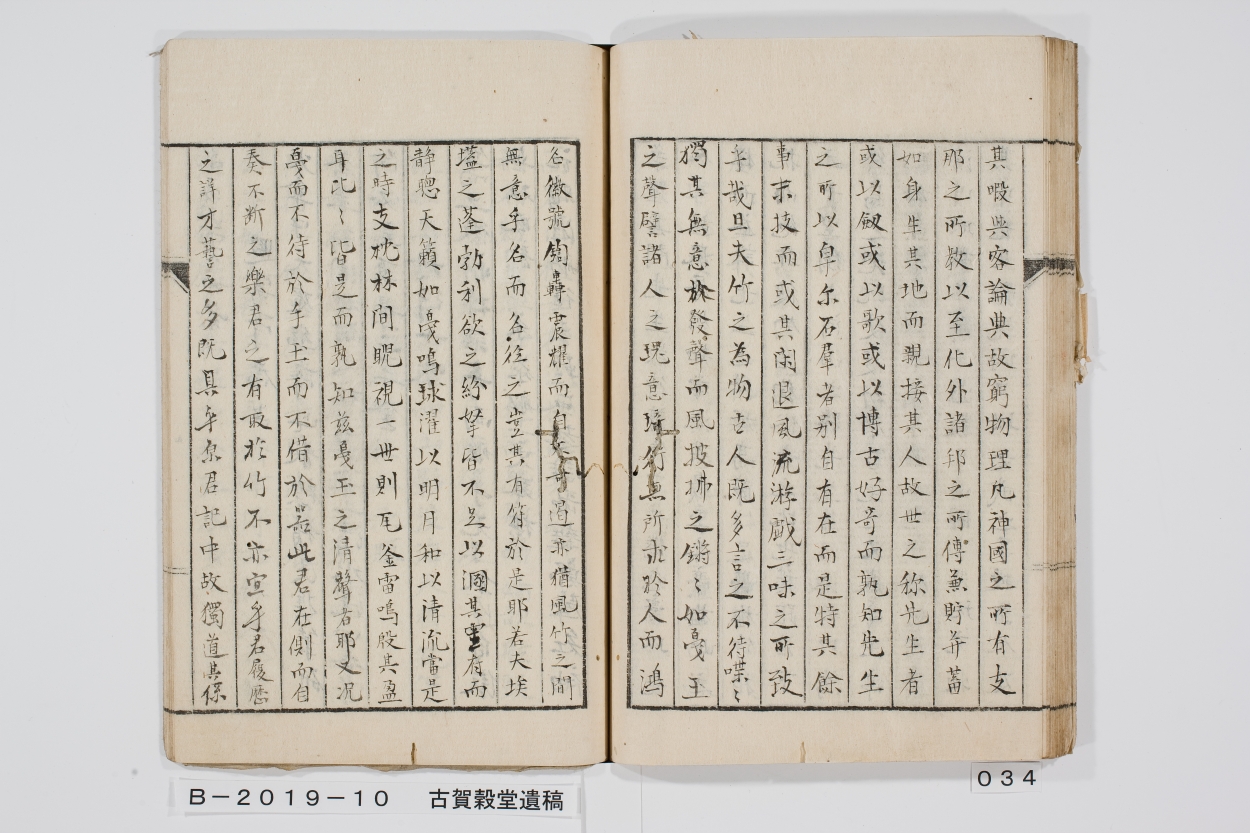 其暇与客論典故窮物理凡神國之所有支
那之所教以至化外諸邦之所傳兼貯并蓄
如身生其地而親接其人故世之称先生者
或以劔或以歌或以博古好奇而孰知先生
之所以卓尓不羣者別自有在而是特其餘
事末技而或其閑退風流游戯三昧之所致
乎哉且夫竹之為物古人既多言之不待喋〻
獨其無意於發聲而風披拂之鏘〻如戞玉
之聲譬諸人之瑰意琦行無所求於人而鴻
名徽號鍧轟震耀而自 亦猶風竹之間
無意乎名而名從之豈其有符於是耶若夫埃
壒之蓬勃利欲之紛拏皆不足以溷其霊府而
静聴天籟如戞鳴球濯以明月和以清流當是
之時支枕林間睨視一世則瓦釜雷鳴殷其盈
耳比〻皆是而孰知兹戞玉之清聲者耶又况
戞而不待於手玉而不借於器此君在側而自
奏不断之樂君之有取於竹不亦宜乎君履歴
之詳才藝之多既具 君記中故獨道其係
B－２０１９－１０　古賀穀堂遺稿
０３４